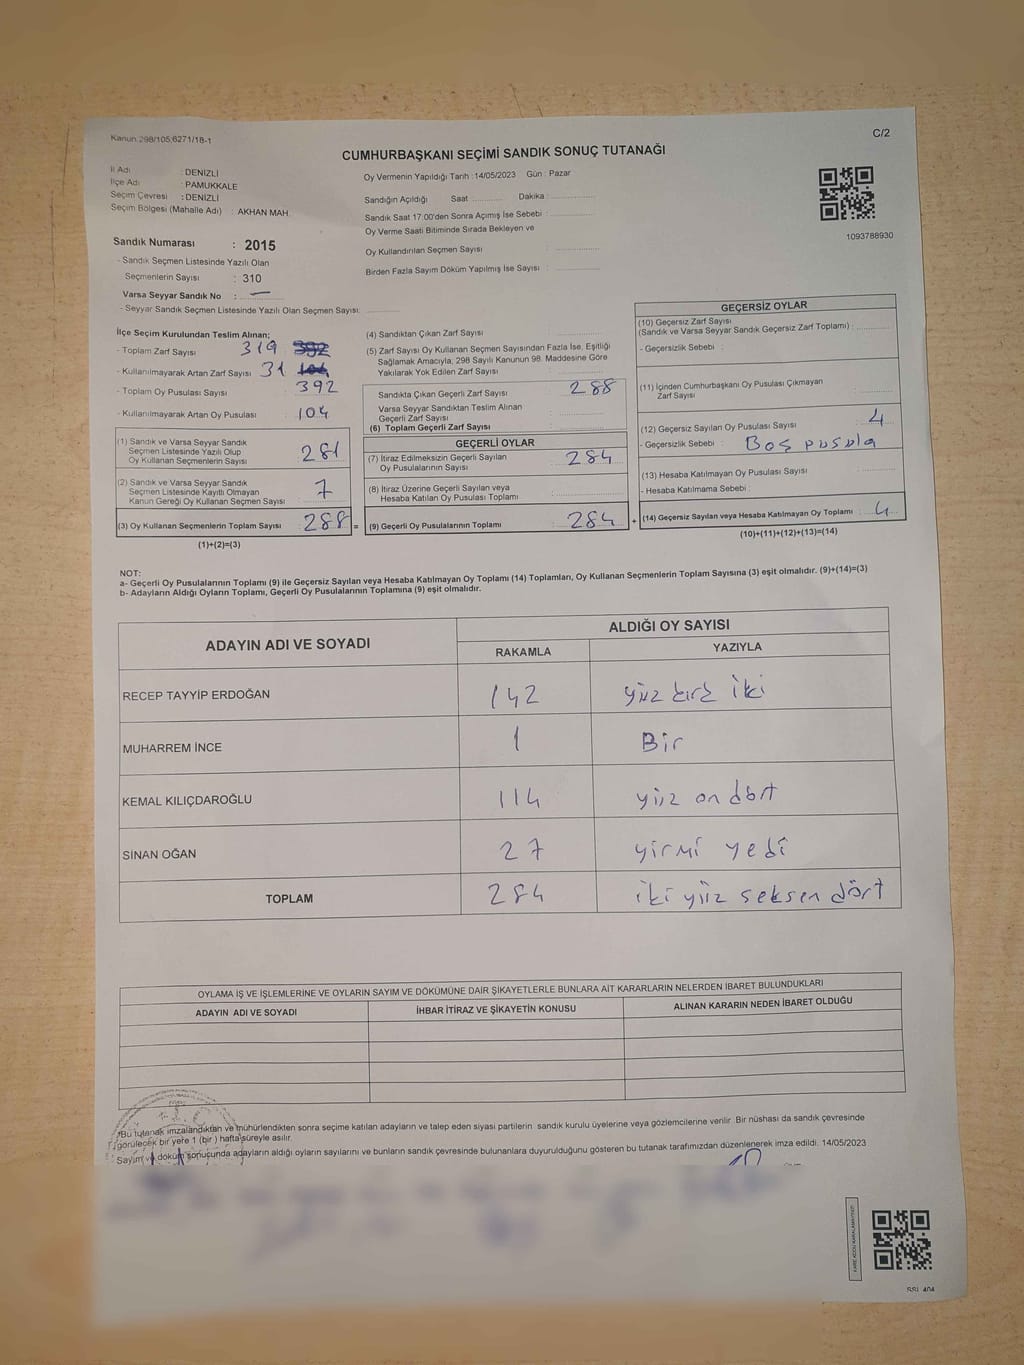 Kanun 298/105;6271/18-1
C/2
CUMHURBAŞKANI SEÇİMİ SANDIK SONUÇ TUTANAĞI
İl Adı : DENİZLİ
İlçe Adı : PAMUKKALE
Seçim Çevresi : DENİZLİ
Seçim Bölgesi (Mahalle Adı) : AKHAN MAH.
Sandık Numarası : 2015
- Sandık Seçmen Listesinde Yazılı Olan
Seçmenlerin Sayısı : 310
Varsa Seyyar Sandık No : —
- Seyyar Sandık Seçmen Listesinde Yazılı Olan Seçmen Sayısı:
Oy Vermenin Yapıldığı Tarih :14/05/2023 Gün : Pazar
Sandığın Açıldığı Saat Dakika :
Sandık Saat 17:00'den Sonra Açımış İse Sebebi :
Oy Verme Saati Bitiminde Sırada Bekleyen ve
Oy Kullandırılan Seçmen Sayısı :
Birden Fazla Sayım Döküm Yapılmış İse Sayısı :
1093788930
İlçe Seçim Kurulundan Teslim Alınan;
- Toplam Zarf Sayısı 319 392
- Kullanılmayarak Artan Zarf Sayısı 31 104
- Toplam Oy Pusulası Sayısı 392
- Kullanılmayarak Artan Oy Pusulası : 104
(1) Sandık ve Varsa Seyyar Sandık
Seçmen Listesinde Yazılı Olup
Oy Kullanan Seçmenlerin Sayısı : 281
(2) Sandık ve Varsa Seyyar Sandık
Seçmen Listesinde Kayıtlı Olmayan
Kanun Gereği Oy Kullanan Seçmen Sayısı : 7
(3) Oy Kullanan Seçmenlerin Toplam Sayısı : 288 =
(1)+(2)=(3)
(4) Sandıktan Çıkan Zarf Sayısı :
(5) Zarf Sayısı Oy Kullanan Seçmen Sayısından Fazla İse, Eşitliği
Sağlamak Amacıyla, 298 Sayılı Kanunun 98. Maddesine Göre
Yakılarak Yok Edilen Zarf Sayısı :
Sandıkta Çıkan Geçerli Zarf Sayısı : 288
Varsa Seyyar Sandıktan Teslim Alınan
Geçerli Zarf Sayısı :
(6) Toplam Geçerli Zarf Sayısı :
GEÇERLİ OYLAR
(7) İtiraz Edilmeksizin Geçerli Sayılan
Oy Pusulalarının Sayısı : 284
(8) İtiraz Üzerine Geçerli Sayılan veya
Hesaba Katılan Oy Pusulası Toplamı :
(9) Geçerli Oy Pusulalarının Toplamı : 284 +
GEÇERSİZ OYLAR
(10) Geçersiz Zarf Sayısı
(Sandık ve Varsa Seyyar Sandık Geçersiz Zarf Toplamı) :
- Geçersizlik Sebebi :
(11) İçinden Cumhurbaşkanı Oy Pusulası Çıkmayan
Zarf Sayısı :
(12) Geçersiz Sayılan Oy Pusulası Sayısı : 4
- Geçersizlik Sebebi : Boş pusula
(13) Hesaba Katılmayan Oy Pusulası Sayısı :
- Hesaba Katılmama Sebebi :
(14) Geçersiz Sayılan veya Hesaba Katılmayan Oy Toplamı : 4
(10)+(11)+(12)+(13)=(14)
NOT:
a- Geçerli Oy Pusulalarının Toplamı (9) ile Geçersiz Sayılan veya Hesaba Katılmayan Oy Toplamı (14) Toplamları, Oy Kullanan Seçmenlerin Toplam Sayısına (3) eşit olmalıdır. (9)+(14)=(3)
b- Adayların Aldığı Oyların Toplamı, Geçerli Oy Pusulalarının Toplamına (9) eşit olmalıdır.
ADAYIN ADI VE SOYADI ALDIĞI OY SAYISI
RAKAMLA YAZIYLA
RECEP TAYYİP ERDOĞAN 142 yüz kırk iki
MUHARREM İNCE 1 Bir
KEMAL KILIÇDAROĞLU 114 yüz on dört
SİNAN OĞAN 27 yirmi yedi
TOPLAM 284 iki yüz seksen dört
OYLAMA İŞ VE İŞLEMLERİNE VE OYLARIN SAYIM VE DÖKÜMÜNE DAİR ŞİKAYETLERLE BUNLARA AİT KARARLARIN NELERDEN İBARET BULUNDUKLARI
ADAYIN ADI VE SOYADI İHBAR İTİRAZ VE ŞİKAYETİN KONUSU ALINAN KARARIN NEDEN İBARET OLDUĞU
*Bu tutanak imzalandıktan ve mühürlendikten sonra seçime katılan adayların ve talep eden siyasi partilerin sandık kurulu üyelerine veya gözlemcilerine verilir. Bir nüshası da sandık çevresinde
görülecek bir yere 1 (bir ) hafta süreyle asılır.
Sayım ve döküm sonucunda adayların aldığı oyların sayılarını ve bunların sandık çevresinde bulunanlara duyurulduğunu gösteren bu tutanak tarafımızdan düzenlenerek imza edildi. 14/05/2023